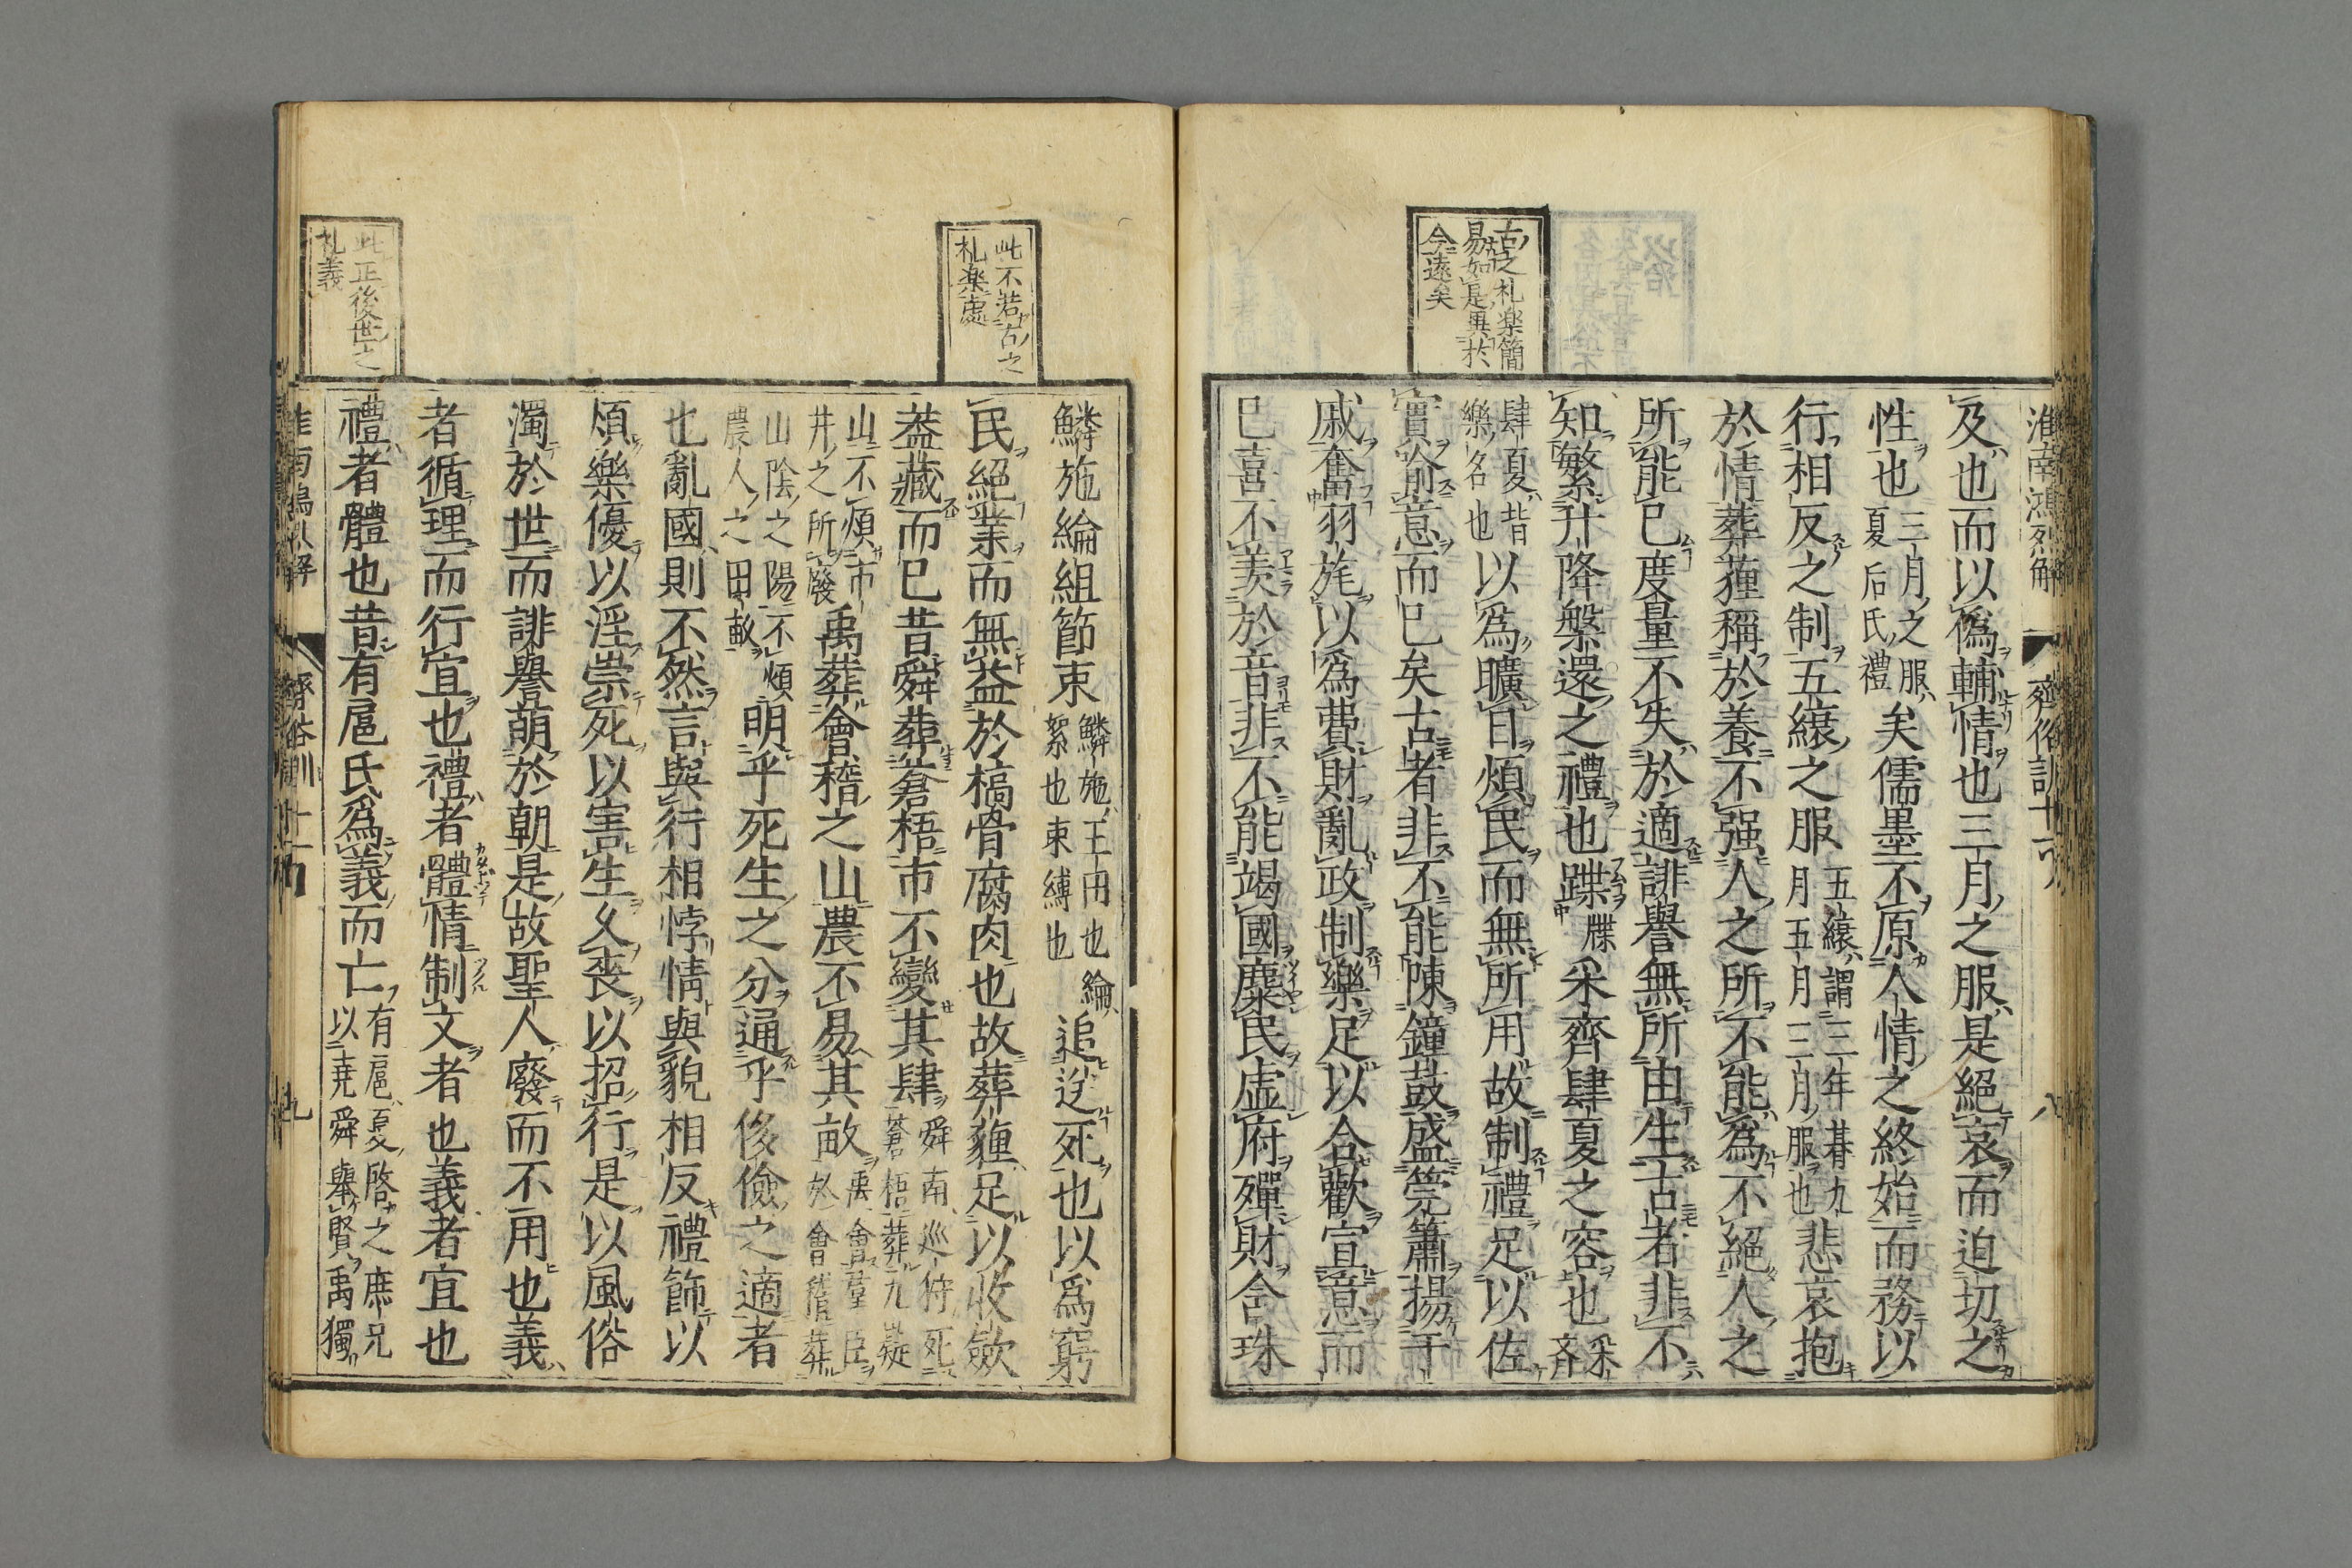 淮南鴻烈解 齊俗訓十一 八
及也而以僞輔情也三月之服是絕哀而迫切之
性也三月之服夏后氏禮矣儒墨不原人情之終始而務以
行相反之制五縗之服五縗謂三年朞九月五月三月服也悲哀抱
於情葬薶稱於養不强人之所不能爲不絕人之
所能已度量不失於適誹譽無所由生古者非不
知繁升降槃還之禮也蹀采齊肆夏之容也采齊
肆夏皆樂名也以爲曠日煩民而無所用故制禮足以佐
實喻意而已矣古者非不能陳鐘鼓盛筦簫揚干
戚奮羽旄以爲費財亂政制樂足以合歡宣意而
已喜不羨於音非不能竭國麋民虛府殫財含珠
古之礼楽簡
易如是異於
今遠矣
鱗施綸組節束鱗施玉田也綸絮也束縛也追送死也以爲窮
民絕業而無益於槁骨腐肉也故葬薶足以收斂
葢藏而已昔舜葬蒼梧市不變其肆舜南巡狩死蒼梧葬九嶷
山不煩市井之所廢禹葬會稽之山農不易其畝禹會羣臣於會稽葬
山陰之陽不煩農人之田畝明乎死生之分通乎侈儉之適者
也亂國則不然言與行相悖情與貌相反禮飾以
煩樂優以淫崇死以害生久喪以招行是以風俗
濁於世而誹譽萌於朝是故聖人廢而不用也義
者循理而行宜也禮者體情制文者也義者宜也
禮者體也昔有扈氏爲義而亡有扈夏啓之庶兄以堯舜舉賢禹獨
此不若古之
礼楽處
此正後世之
礼義
淮南鴻烈解 齊俗訓十一 九